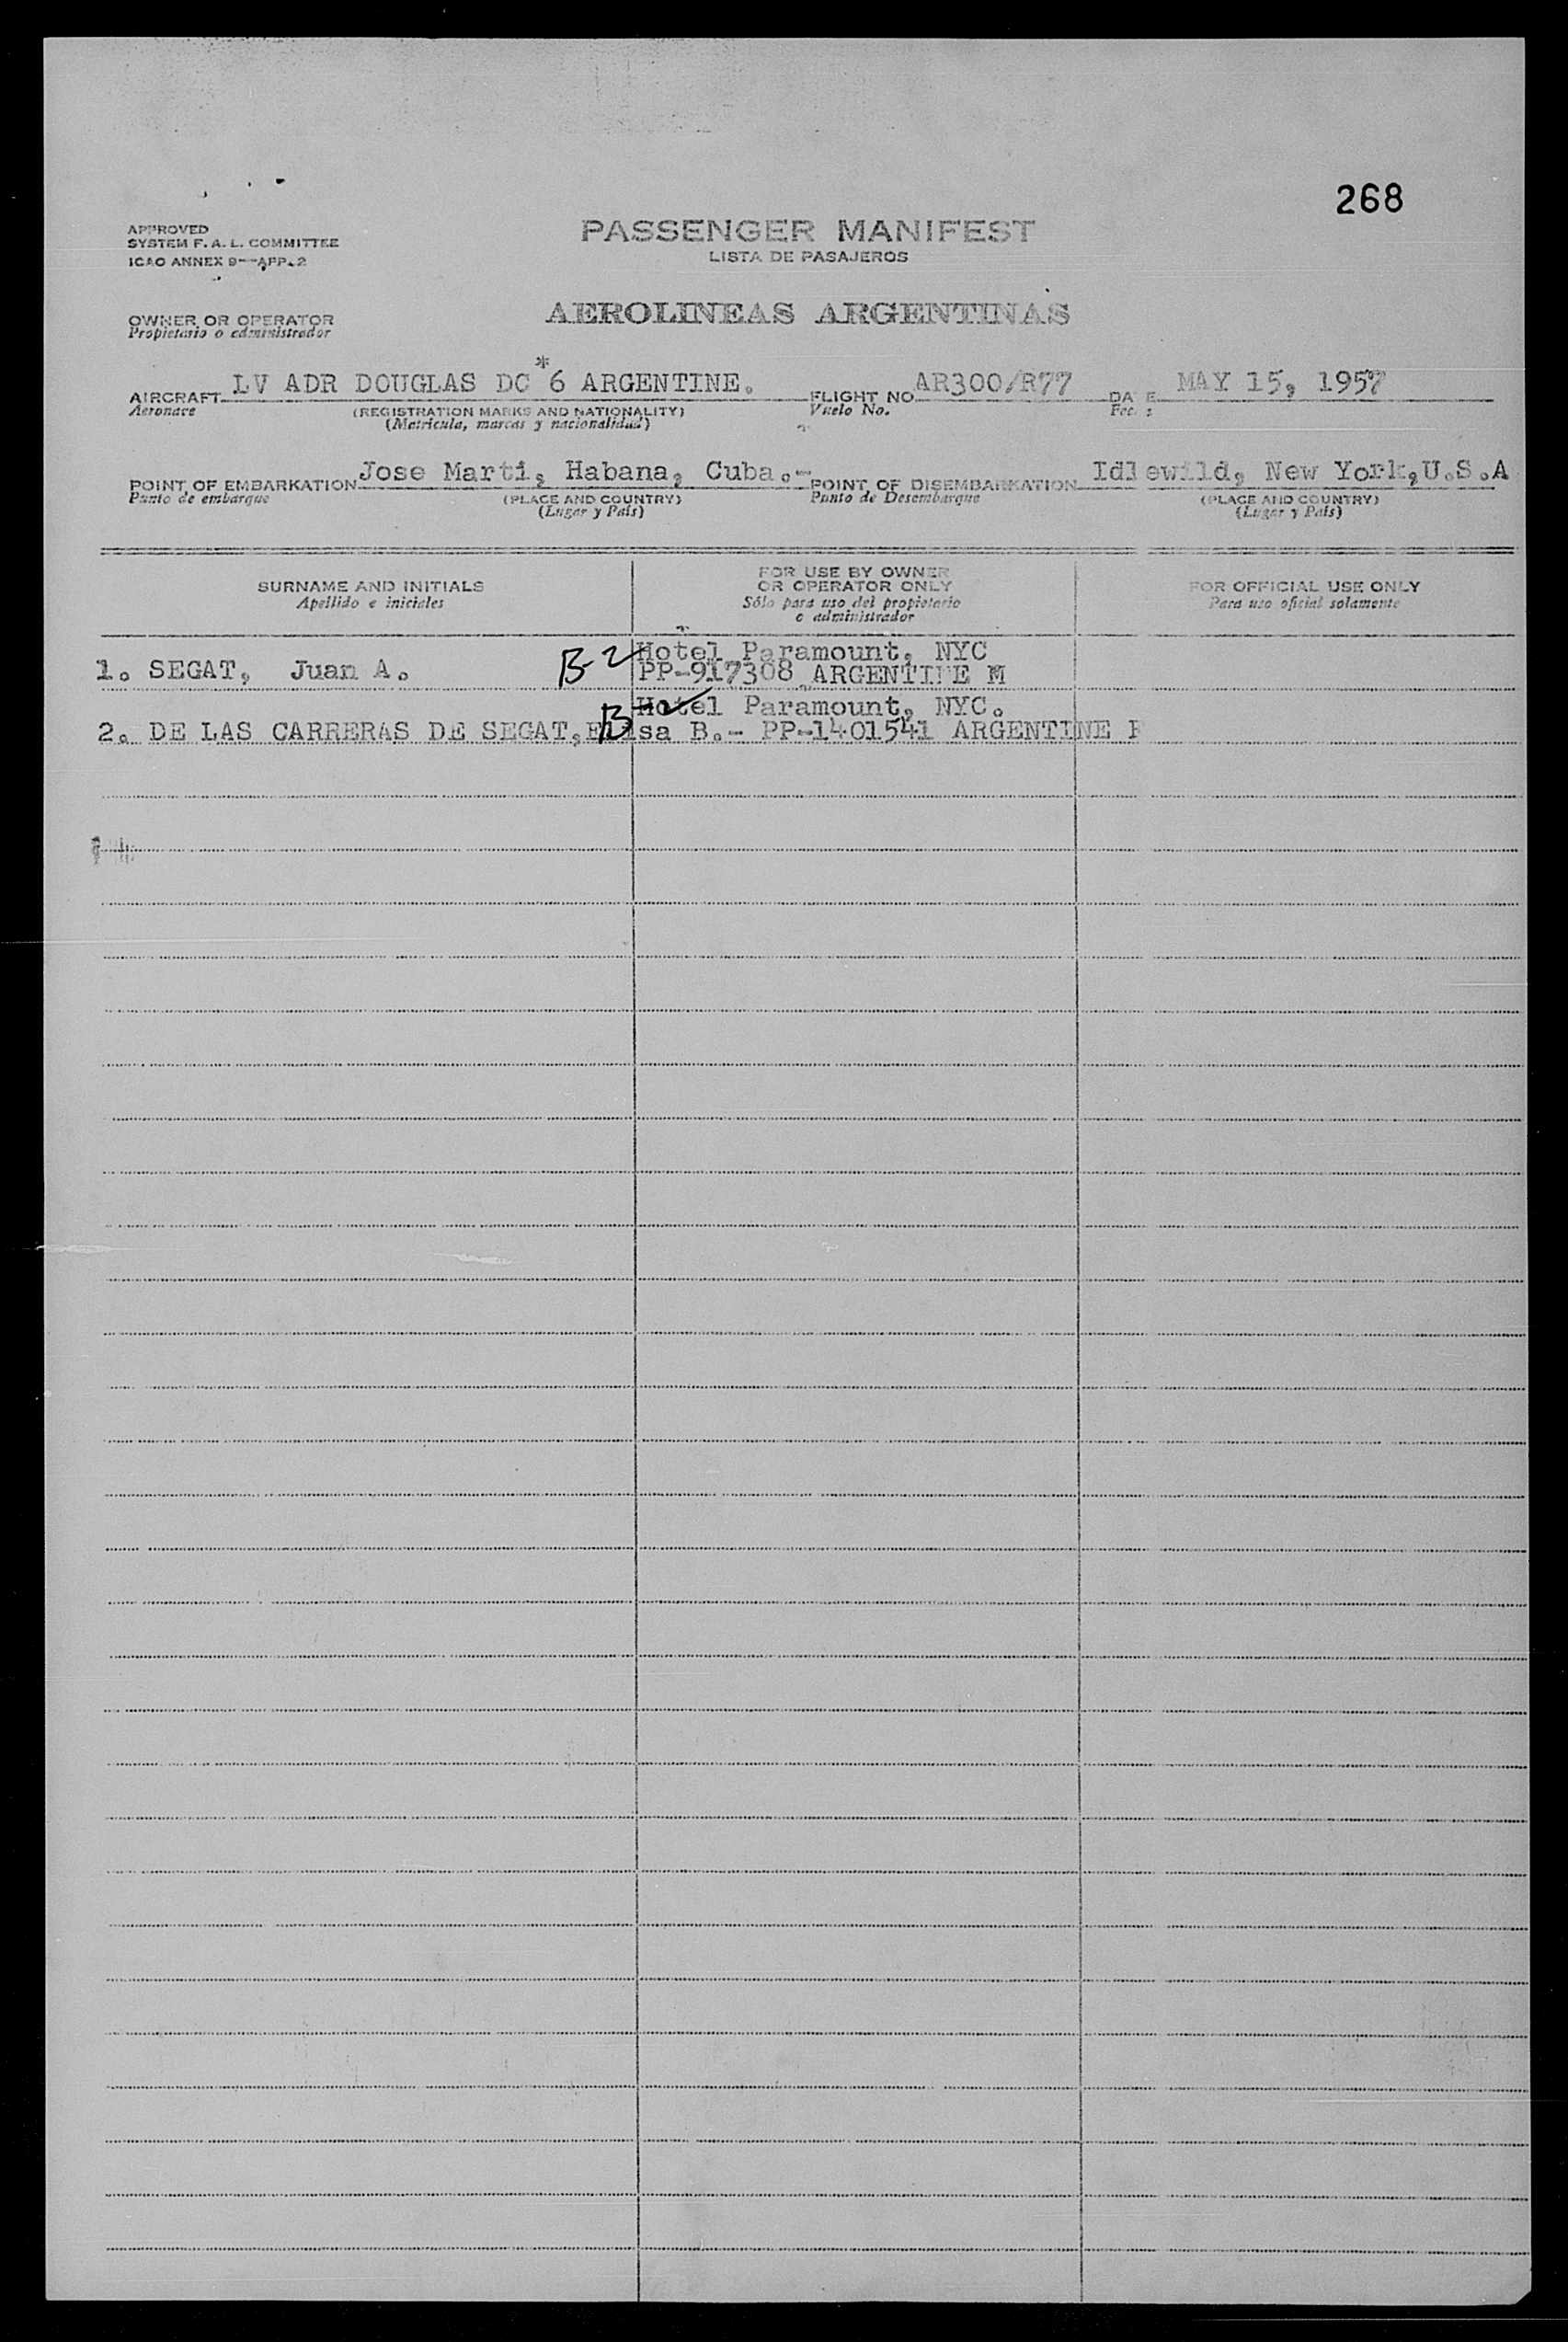 268
APPROVED
SYSTEM F. A. L. COMMITTEE
ICAO ANNEX 9—APP. 2
PASSENGER MANIFEST
LISTA DE PASAJEROS
OWNER OR OPERATOR
Propietario o administrador
AEROLINEAS ARGENTINAS
AIRCRAFT LV ADR DOUGLAS DC*6 ARGENTINE. FLIGHT NO. AR300/R77 DA E MAY 15, 1957
Aeronave (REGISTRATION MARKS AND NATIONALITY) Vuelo No.
(Matrícula, marcas y nacionalidad)
POINT OF EMBARKATION Jose Marti, Habana, Cuba.- POINT OF DISEMBARKATION Idlewild, New York,U.S.A
Punto de embarque (PLACE AND COUNTRY) Punto de Desembarque (PLACE AND COUNTRY)
(Lugar y País) (Lugar y País)
SURNAME AND INITIALS
Apellido e iniciales
FOR USE BY OWNER
OR OPERATOR ONLY
Sólo para uso del propietario
o administrador
FOR OFFICIAL USE ONLY
Para uso oficial solamente
Hotel Paramount, NYC
1. SEGAT, Juan A. B-2 PP-917308 ARGENTINE M
Hotel Paramount, NYC.
2. DE LAS CARRERAS DE SEGAT, Elisa B.- PP-1401541 ARGENTINE F